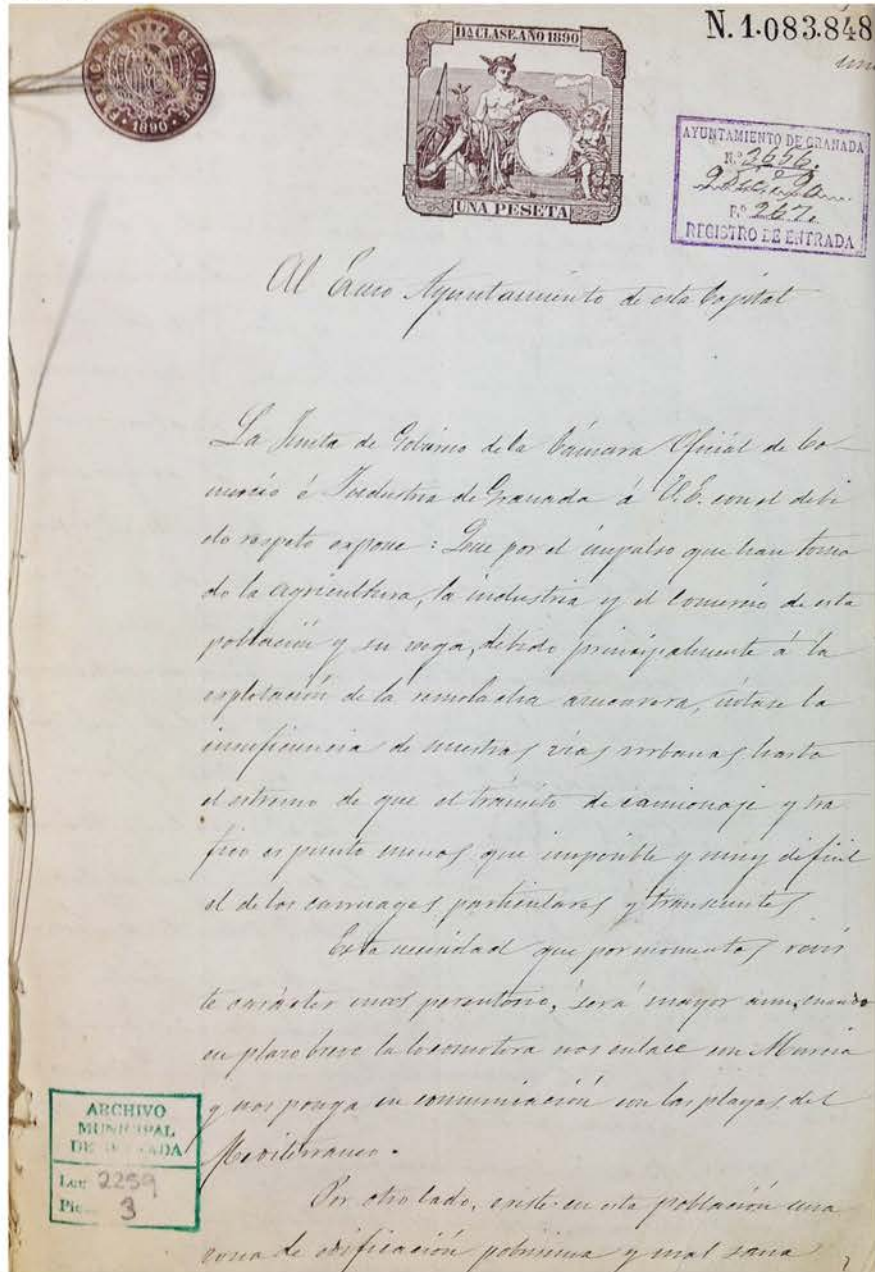 FABRICA NAL. DEL TIMBRE
·1890·
11A CLASE. AÑO 1890
UNA PESETA
N.1.083.848
AYUNTAMIENTO DE GRANADA
N.º 3656.
F.º 267.
REGISTRO DE ENTRADA
Al Excmo Ayuntamiento de esta Capital
La Junta de Gobierno de la Cámara Oficial de Co-
mercio é Industria de Granada á V.E. con el debi
do respeto expone: Que por el impulso que han toma
do la agricultura, la industria y el Comercio de esta
población y su vega, debido principalmente á la
esplotación de la remolacha azucarera, nótase la
insuficiencia de nuestras vías urbanas hasta
el estremo de que el tránsito de camionaje y tra
fico es punto menos que imposible y muy dificil
el de los carruages particulares y transeuntes
Esta necesidad que por momentos revis
te carácter mas perentorio, será mayor aun, cuando
en plazo breve la locomotora nos enlace con Murcia
y nos ponga en comunicación con las playas del
Mediterraneo.
Por otro lado, existe en esta población una
zona de edificación pobrisima y mal sana
ARCHIVO
MUNICIPAL
DE GRANADA
Leg 2259
Pie 3